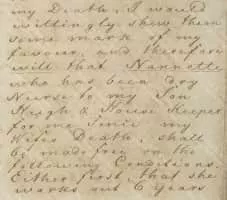 my Death, I would
willingly shew them
some mark of my
favour, and therefore
will that Nannette
who has been dry
Nurse to my Son
Hugh & House Keeper
for me since my
Wifes Death, shall
be made free on the
following Conditions.
Either first, that she
works out 6 Years